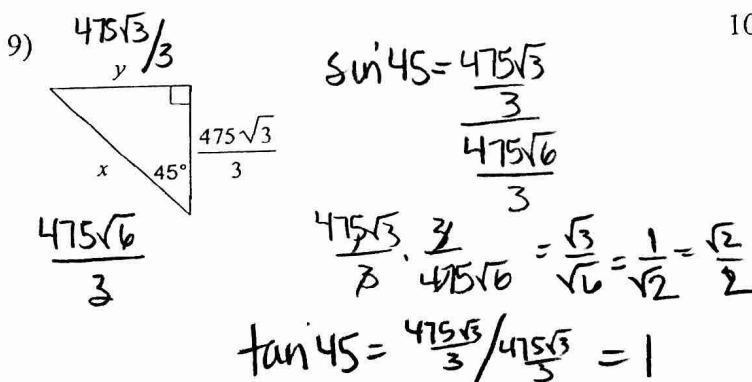 9) 475√3/3
10
y
475√3/3
x 45°
475√6/3
sin 45 = 475√3/3 / 475√6/3
475√3/3 · 3/475√6 = √3/√6 = 1/√2 = √2/2
tan 45 = 475√3/3 / 475√3/3 = 1